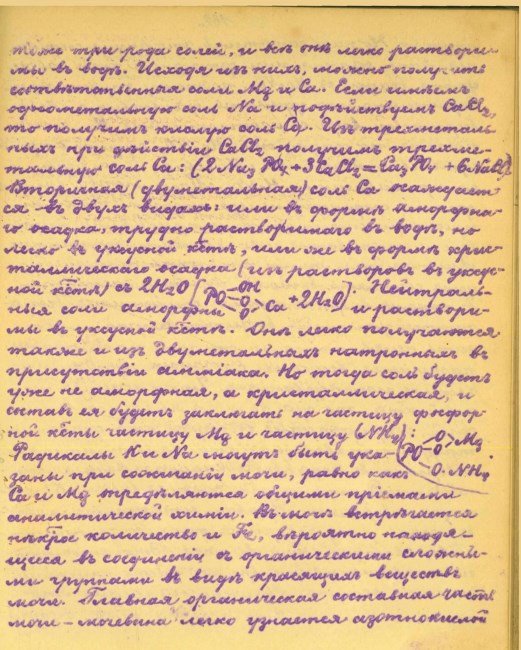 тѣже три рода солей, и всѣ онѣ легко раствори-
мы въ водѣ. Исходя изъ нихъ, можно получить
соотвѣтственныя соли Mg и Ca. Если имѣемъ
однометальную соль Na и подѣйствуемъ CaCl₂,
то получимъ кислую соль Ca. Изъ трехметаль-
ныхъ при дѣйствіи CaCl₂ получимъ трехме-
тальную соль Ca: (2Na₃PO₄ + 3CaCl₂ = Ca₃PO₄ + 6NaCl).
Вторичная (двуметальная) соль Ca осаждает-
ся въ двухъ видахъ: или въ формѣ аморфна-
го осадка, трудно растворимаго въ водѣ, но
легко въ уксусной к̅ с̅тѣ, или же въ формѣ крис-
таллическаго осадка (изъ растворовъ въ уксус-
ной к̅с̅тѣ) съ 2H₂O [PO OH O O > Ca + 2H₂O]. Нейтраль-
ныя соли аморфны и раствори-
мы въ уксусной к̅с̅тѣ. Онѣ легко получаются
также и изъ двуметальныхъ натронныхъ въ
присутствіи амміака. Но тогда соль будетъ
уже не аморфная, а кристаллическая, и
составъ ея будетъ заключать на частицу фосфор-
ной к̅с̅ты частицу Mg и частицу (NH₄):
Радикалы K и Na могутъ быть ука- (PO O O > Mg
заны при сожиганіи мочи, равно какъ O·NH₄.
Ca и Mg опредѣляются общими пріемами
аналитической химіи. Въ мочѣ встрѣчается
нѣк̅рое количество и Fe, вѣроятно находя-
щееся въ соединеніи съ органическими сложны-
ми группами въ видѣ красящихъ веществъ
мочи. Главная органическая составная часть
мочи – мочевина легко узнается азотнокислой